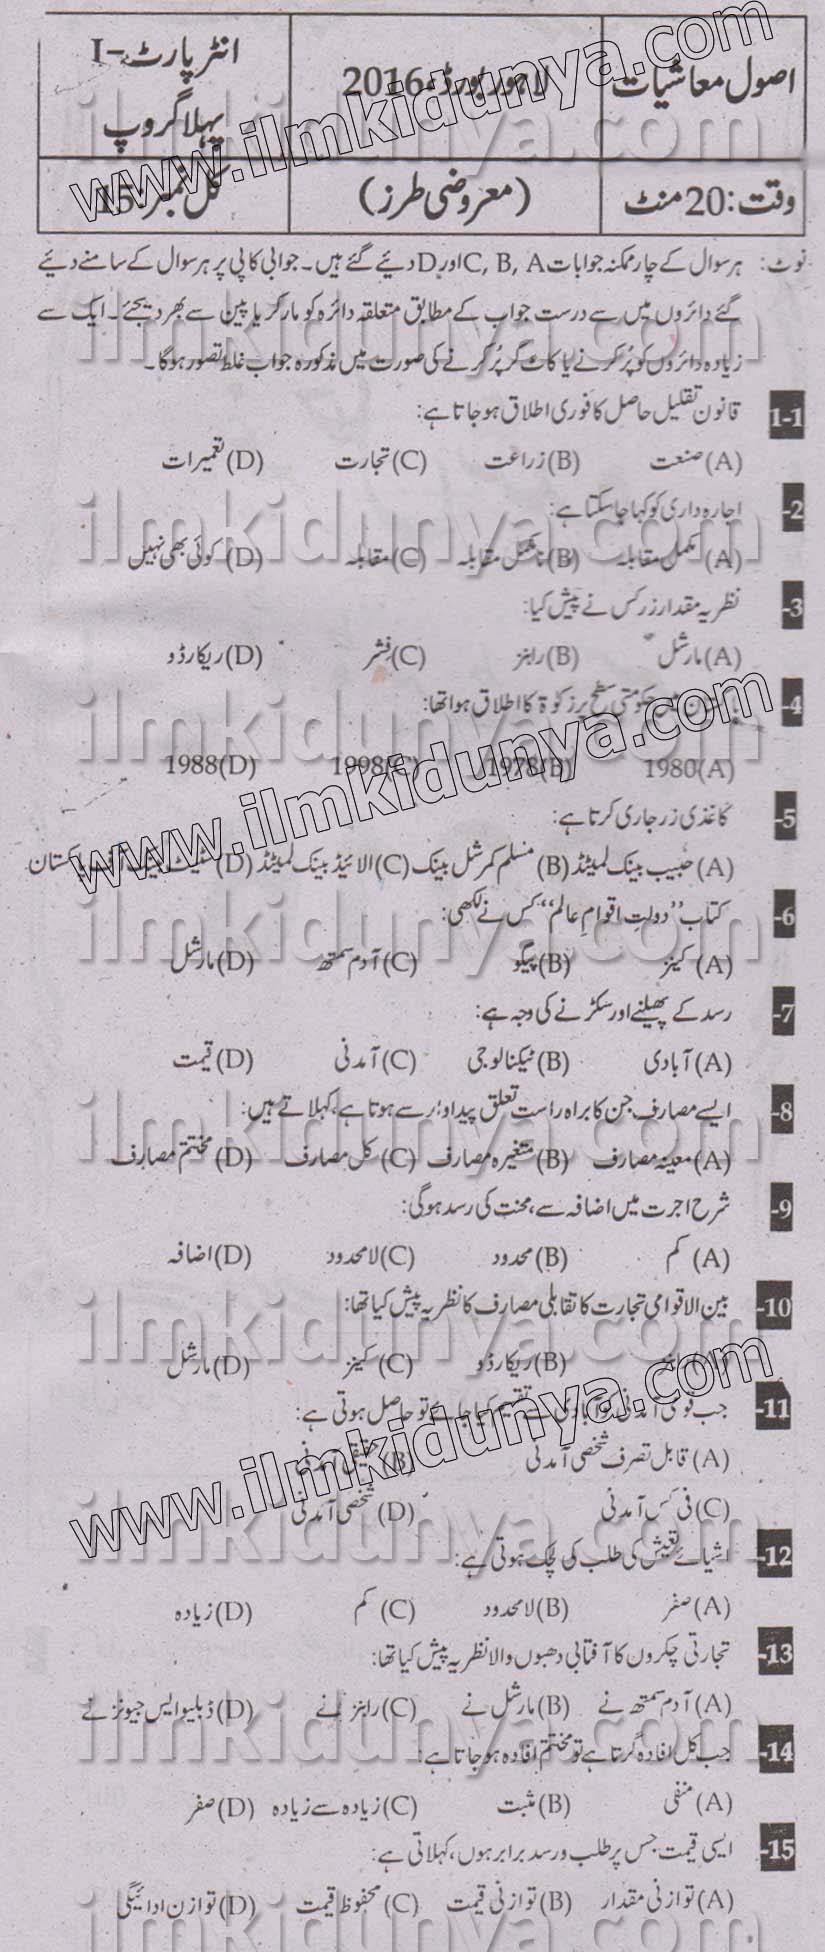 اصول معاشیات
لاہور بورڈ 2016
انٹر پارٹ-I
پہلا گروپ
وقت: 20 منٹ
(معروضی طرز)
کل نمبر: 15
نوٹ: ہر سوال کے چار ممکنہ جوابات C, B, A اور D دیئے گئے ہیں۔ جوابی کاپی پر ہر سوال کے سامنے دیئے
گئے دائروں میں سے درست جواب کے مطابق متعلقہ دائرہ کو مارکر یا پین سے بھر دیجئے۔ ایک سے
زیادہ دائروں کو پُر کرنے یا کاٹ کر پُر کرنے کی صورت میں مذکورہ جواب غلط تصور ہوگا۔
1-1 قانون تقلیل حاصل کا فوری اطلاق ہو جاتا ہے:
(A) صنعت (B) زراعت (C) تجارت (D) تعمیرات
2- اجارہ داری کو کہا جا سکتا ہے:
(A) مکمل مقابلہ (B) نامکمل مقابلہ (C) مقابلہ (D) کوئی بھی نہیں
3- نظریہ مقدار زر کس نے پیش کیا:
(A) مارشل (B) رابنز (C) فشر (D) ریکارڈو
4- میں حکومتی سطح پر زکوٰۃ کا اطلاق ہوا تھا:
(A) 1980 (B) 1978 (C) 1998 (D) 1988
5- کاغذی زر جاری کرتا ہے:
(A) حبیب بینک لمیٹڈ (B) مسلم کمرشل بینک (C) الائیڈ بینک لمیٹڈ (D) سٹیٹ بینک آف پاکستان
6- کتاب "دولتِ اقوامِ عالم" کس نے لکھی:
(A) کینز (B) پیگو (C) آدم سمتھ (D) مارشل
7- رسد کے پھیلنے اور سکڑنے کی وجہ ہے:
(A) آبادی (B) ٹیکنالوجی (C) آمدنی (D) قیمت
8- ایسے مصارف جن کا براہ راست تعلق پیداوار سے ہوتا ہے، کہلاتے ہیں:
(A) معینہ مصارف (B) متغیرہ مصارف (C) کل مصارف (D) مختتم مصارف
9- شرح اجرت میں اضافہ سے، محنت کی رسد ہوگی:
(A) کم (B) محدود (C) لامحدود (D) اضافہ
10- بین الاقوامی تجارت کا تقابلی مصارف کا نظریہ پیش کیا تھا:
(B) ریکارڈو (C) کینز (D) مارشل
11- جب قومی آمدنی کو آبادی سے تقسیم کیا جائے تو حاصل ہوتی ہے:
(A) قابل تصرف شخصی آمدنی (B) حقیقی آمدنی
(C) فی کس آمدنی (D) شخصی آمدنی
12- اشیائے تعیش کی طلب کی لچک ہوتی ہے:
(A) صفر (B) لامحدود (C) کم (D) زیادہ
13- تجارتی چکروں کا آفتابی دھبوں والا نظریہ پیش کیا تھا:
(A) آدم سمتھ نے (B) مارشل نے (C) رابنز نے (D) ڈبلیو ایس جیونز نے
14- جب کل افادہ گرتا ہے تو مختتم افادہ ہو جاتا ہے:
(A) منفی (B) مثبت (C) زیادہ سے زیادہ (D) صفر
15- ایسی قیمت جس پر طلب و رسد برابر ہوں، کہلاتی ہے:
(A) توازنی مقدار (B) توازنی قیمت (C) محفوظ قیمت (D) توازن ادائیگی
www.ilmkidunya.com
www.ilmkidunya.com
www.ilmkidunya.com
ilmkidunya.com
ilmkidunya.com
ilmkidunya.com
ilmkidunya.com
ilmkidunya.com
ilmkidunya.com
ilmkidunya.com
ilmkidunya.com
ilmkidunya.com
ilmkidunya.com